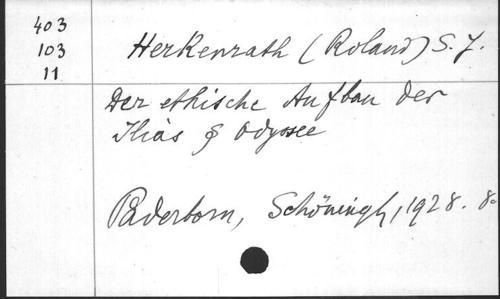 403
103
11
Herkenrath (Roland) S. J.
Der ethische Aufbau der
Ilias & Odyssee
Paderborn, Schöningh, 1928. 8º